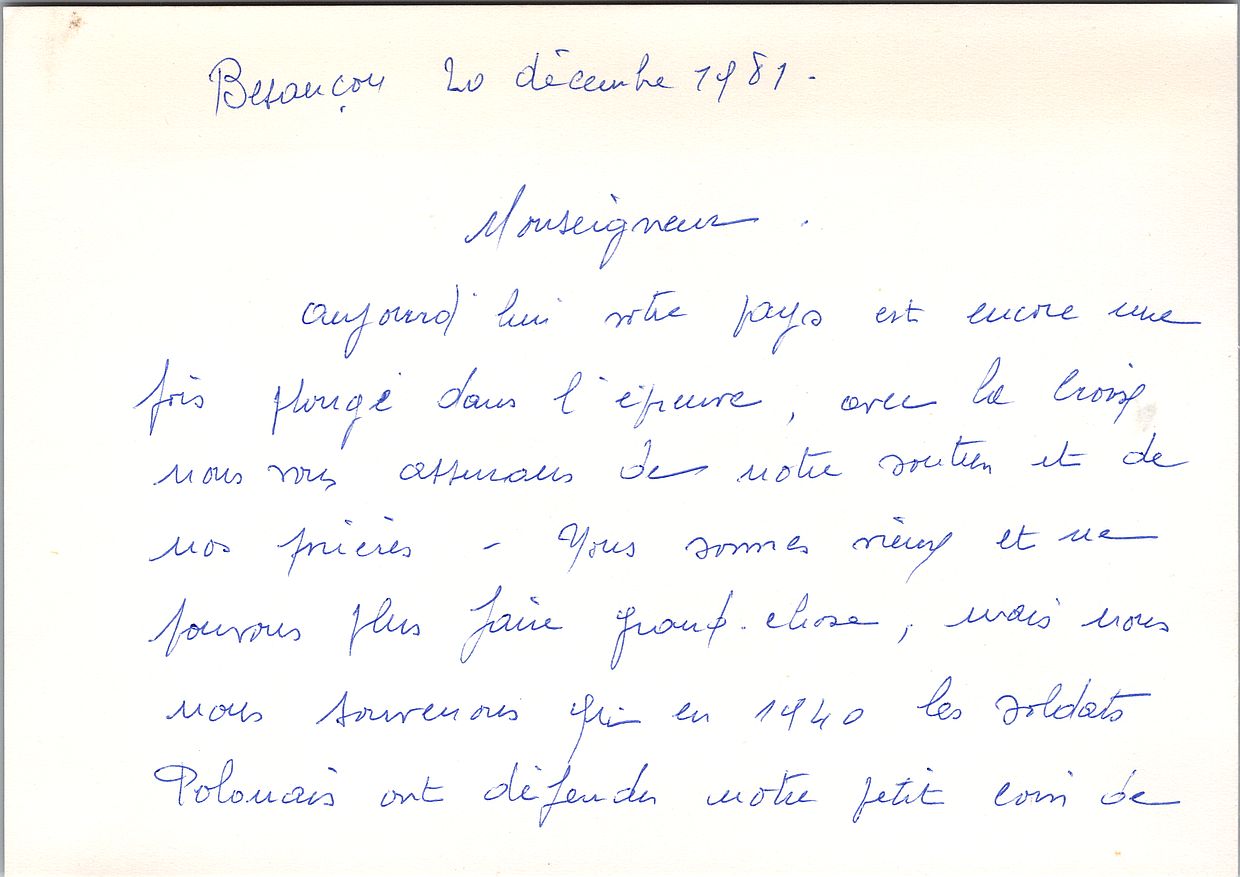 Besançon 20 décembre 1981.
Monseigneur.
aujourd'hui votre pays est encore une
fois plongé dans l'épreuve, avec la Croix
nous vous assurons de notre soutien et de
nos prières - Nous sommes vieux et ne
pouvons plus faire grand-chose, mais nous
nous souvenons qu'en 1940 les soldats
Polonais ont défendu notre petit coin de